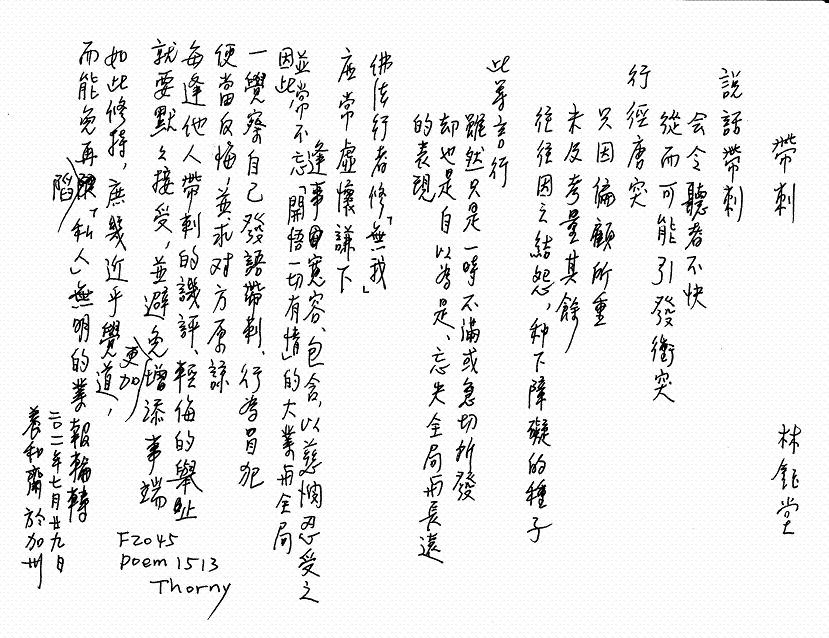 帶刺
林鈺堂
說話帶刺
會令聽者不快
從而可能引發衝突
行徑唐突
只因偏顧所重
未及考量其餘
往往因之結怨，種下障礙的種子
此等言行
雖然只是一時不滿或急切所發
却也是自以為是、忘失全局而長遠
的表現
佛法行者修「無我」
應常虛懷謙下
逢事寬容、包含，以慈憫忍受之
並常不忘「開悟一切有情」的大業與全局
因此
一覺察自己發語帶刺、行為冒犯
便當反悔，並求对方原諒
每逢他人帶刺的譏評、輕侮的舉止
就要默々接受，並避免更加增添事端
如此修持，庶幾近乎覺道，
而能免再陷「私人」無明的業報輪轉
二〇二一年七月廿九日
養和齋於加州
F2045
Poem 1513
Thorny